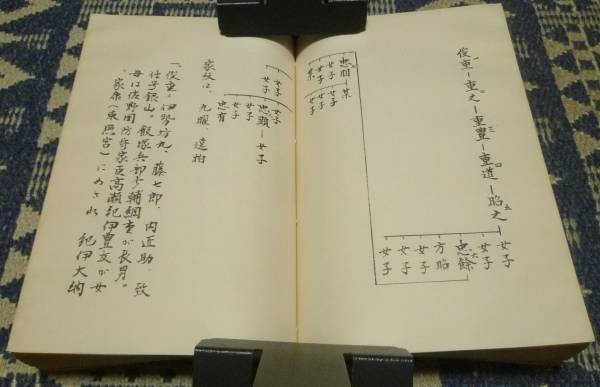 俊重一―重之二―重豊三―重道四―昭之五
女子
女子
忠餘六
方昭
女子
女子
女子
某
女子
女子
某
女子
女子
女子
女子
女子
女子
女子
忠宥
家紋は、九曜、違柏
「俊重。伊勢坊丸、藤七郎、内匠助、致
仕号銀山。飯塚兵部少輔綱重が長男。
母は佐野周防守家臣高瀬紀伊豊文が女
。家康(東照宮)にめされ 紀伊大納